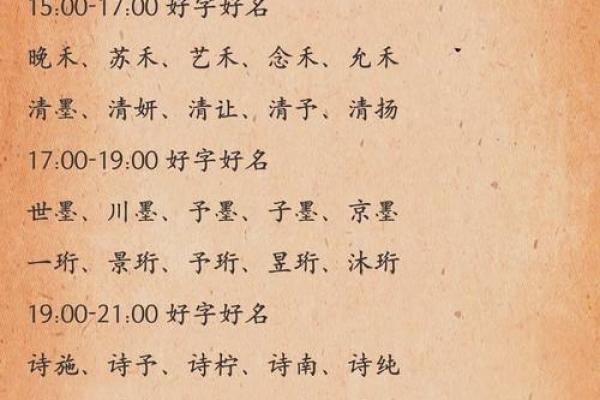 15:00-17:00 好字好名
晚禾、苏禾、艺禾、念禾、允禾
清墨、清妍、清让、清予、清扬
17:00-19:00 好字好名
世墨、川墨、予墨、子墨、京墨
一珩、景珩、予珩、昱珩、沐珩
19:00-21:00 好字好名
诗施、诗予、诗柠、诗南、诗纯